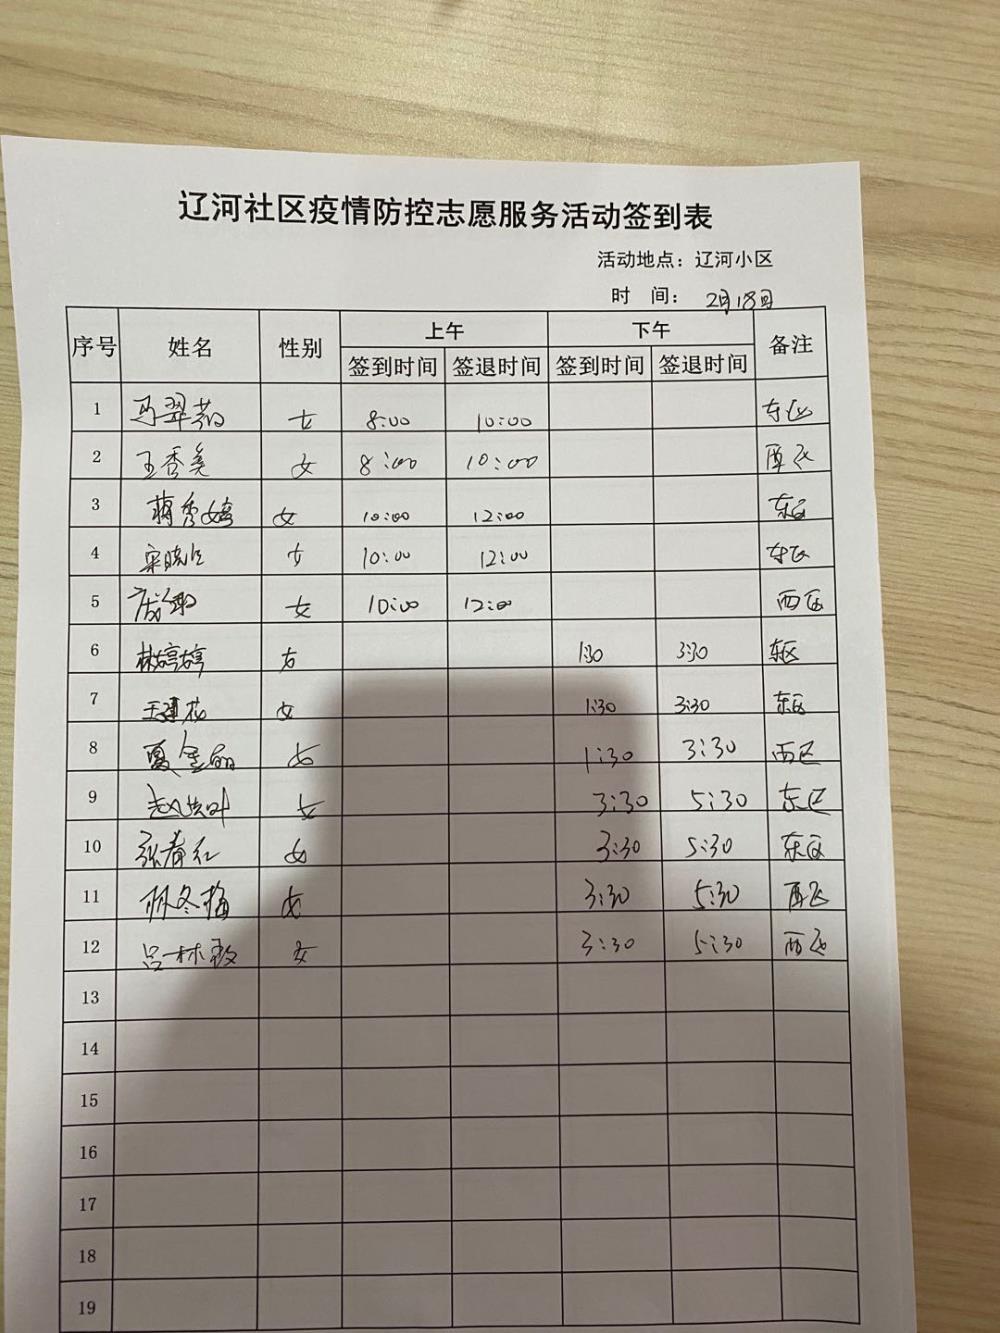 辽河社区疫情防控志愿服务活动签到表
活动地点：辽河小区
时 间： 2月18日
序号 姓名 性别 上午 下午 备注
签到时间 签退时间 签到时间 签退时间
1 马翠 女 8:00 10:00 东区
2 王秀美 女 8:00 10:00 西区
3 蒋秀婷 女 10:00 12:00 东区
4 宋晓 女 10:00 12:00 东区
5 女 10:00 12:00 西区
6 林婷婷 女 1:30 3:30 东区
7 王莲花 女 1:30 3:30 东区
8 夏金丽 女 1:30 3:30 西区
9 赵叶 女 3:30 5:30 东区
10 张春红 女 3:30 5:30 东区
11 冬梅 女 3:30 5:30 西区
12 吕林 女 3:30 5:30 西区
13
14
15
16
17
18
19